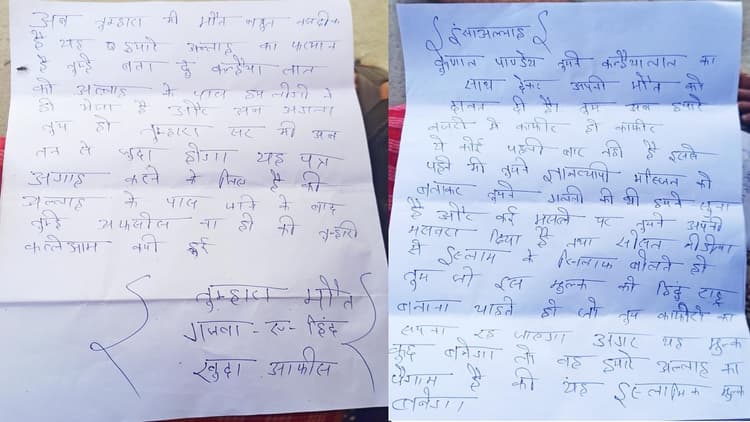 अब तुम्हारी भी मौत बहुत नजदीक
है यह हमारे अल्लाह का फरमान
है तुम्हे बता दूं कन्हैया लाल
को अल्लाह के पास हम लोगो ने
ही भेजा है और अब अगला
तुम हो तुम्हारा सर भी अब
तन से जुदा होगा यह पत्र
अगाह करने के लिए है की
अल्लाह के पास जाने के बाद
तुम्हे अफसोस ना हो की तुम्हारी
कत्लेआम क्यो हुई
तुम्हारा मौत
गजवा-ए-हिंद
खुदा आफीस
इंसाअल्लाह
कुणाल पाण्डेय तुमने कन्हैयालाल का
साथ देकर अपनी मौत को
दावत दी है। तुम अब हमारे
नजरो मे काफीर हो काफीर
ये कोई पहली बार नही है इससे
पहले भी तुमने ज्ञानव्यापी मस्जिद को
बताकर तुमने गलती की थी हमने सुना
है और कई मसले पर तुमने अपनी
मसवरा दिया है तथा सोसल मीडीया
से इस्लाम के खिलाफ बोलते हो
तुम जो इस मुल्क को हिंदु राष्ट्र
बनाना चाहते हो जो तुम काफीरो का
सपना रह जाएगा अगर यह मुल्क
कुछ बनेगा तो वह हमारे अल्लाह का
पैगाम है की यह इस्लामिक मुल्क
बनेगा।